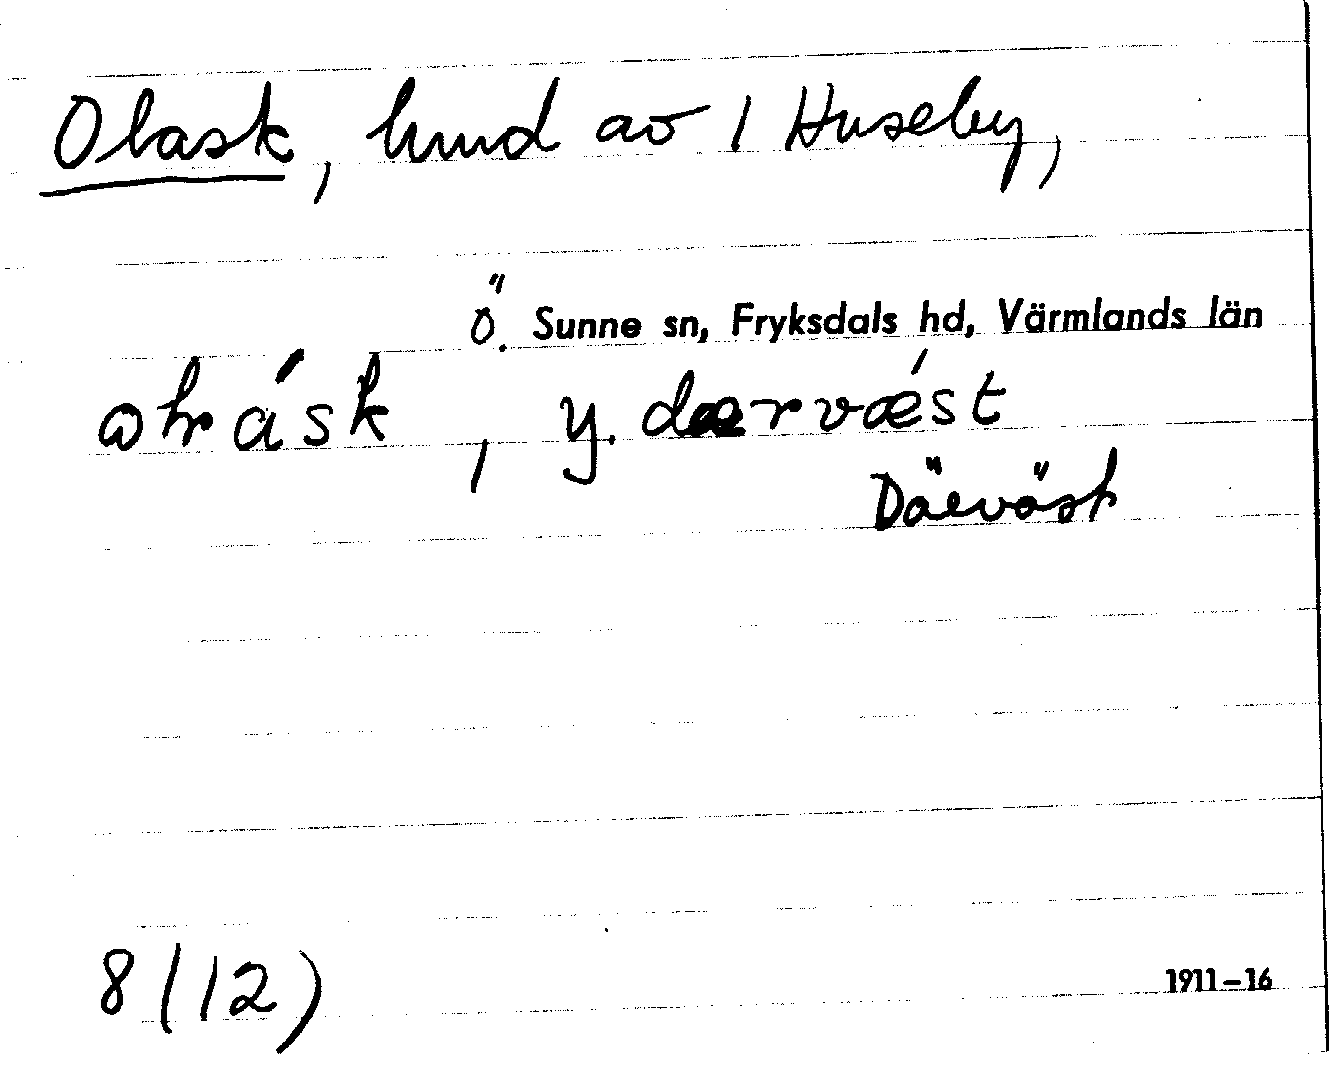 Obask, lund av 1 Huseby,
Ö. Sunne sn, Fryksdals hd, Värmlands län
y. dærvǽst
Däeväst
8(12)
1911–16